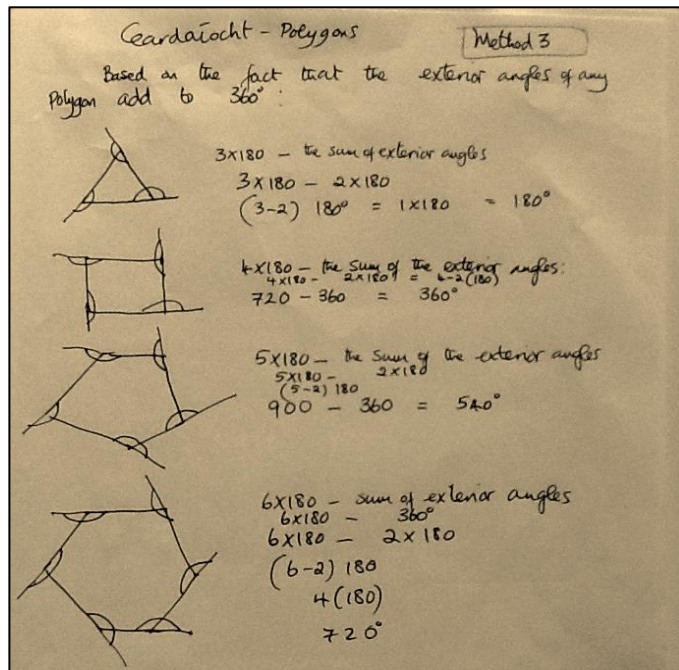 Ceardaíocht - Polygons
Method 3
Based on the fact that the exterior angles of any
Polygon add to 360° :
3×180 - the sum of exterior angles
3×180 - 2×180
(3-2) 180° = 1×180 = 180°
4×180 - the sum of the exterior angles:
4×180 - 2×180 = 4-2(180)
720 - 360 = 360°
5×180 - the sum of the exterior angles
5×180 - 2×180
(5-2) 180
900 - 360 = 540°
6×180 - sum of exterior angles
6×180 - 360°
6×180 - 2×180
(6-2) 180
4(180)
720°